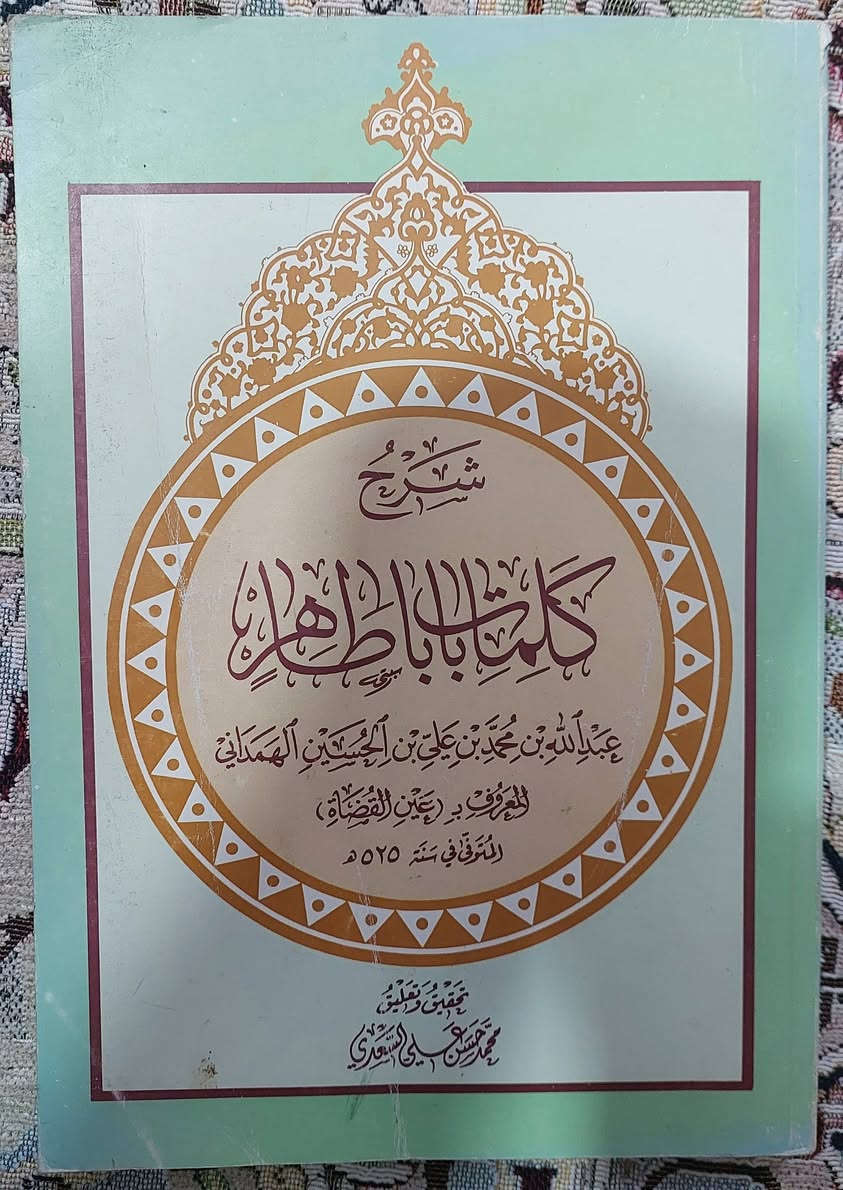 شَرْحُ
كَلِمَاتِ بَابَا طَاهِرٍ
عَبْدِ اللّٰهِ بْنِ مُحَمَّدِ بْنِ عَلِيِّ بْنِ الْحُسَيْنِ الْهَمَدَانِي
الْمَعْرُوفِ بِـ (عَيْنِ الْقُضَاةِ)
الْمُتَوَفَّى فِي سَنَةِ ٥٢٥ هـ
تَحْقِيقُ وَتَعْلِيقُ
مُحَمَّد حَسَن عَلِي السَّعَدِي